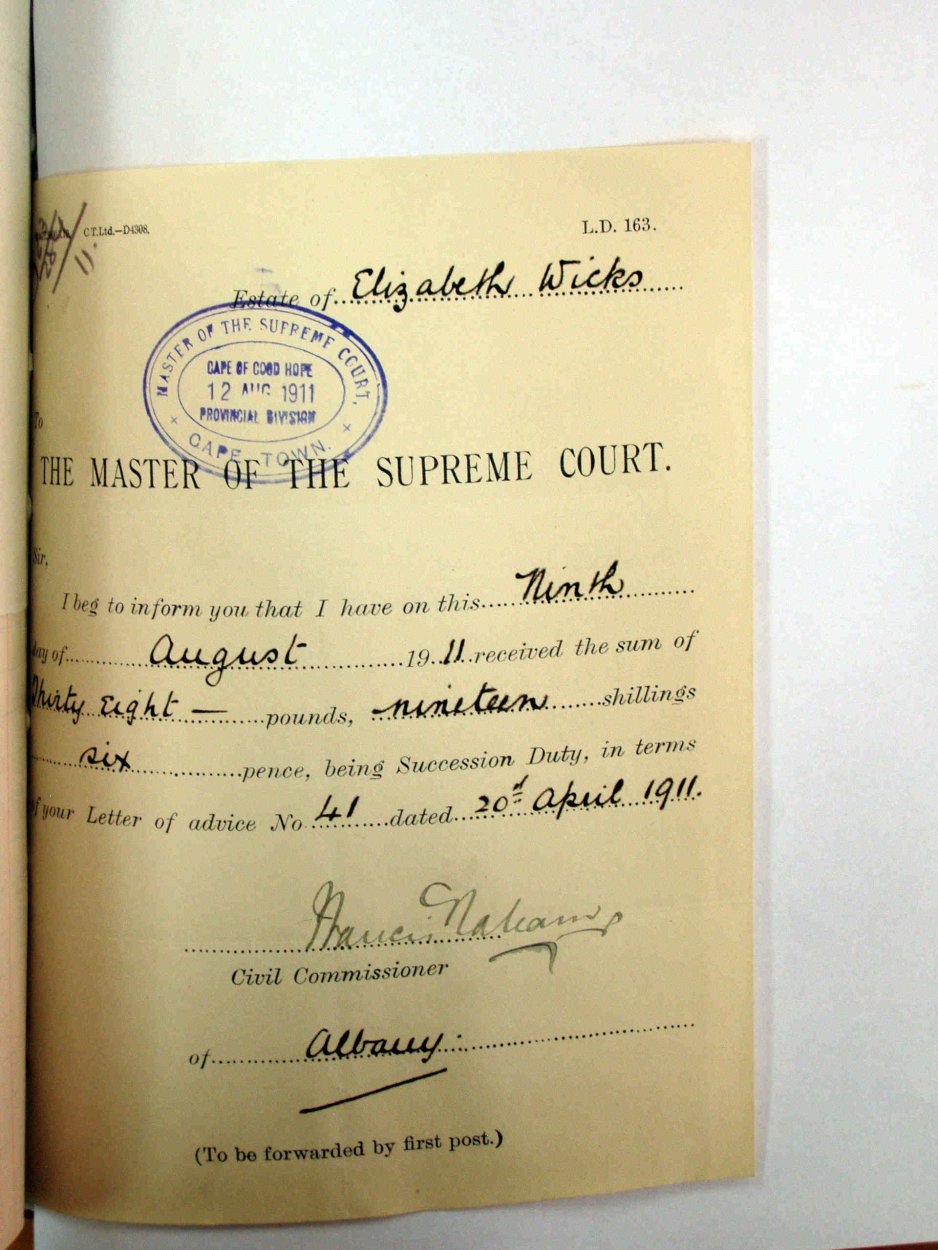 C.T.Ltd.—D4308.
L.D. 163.
Estate of Elizabeth Wicks
MASTER OF THE SUPREME COURT,
CAPE OF GOOD HOPE
12 AUG 1911
PROVINCIAL DIVISION
CAPE TOWN.
To
THE MASTER OF THE SUPREME COURT.
Sir,
I beg to inform you that I have on this Ninth
day of August 1911 received the sum of
Thirty Eight — pounds, nineteen shillings
six pence, being Succession Duty, in terms
of your Letter of advice No 41 dated 20th April 1911.
Francis
Civil Commissioner
of Albany.
(To be forwarded by first post.)